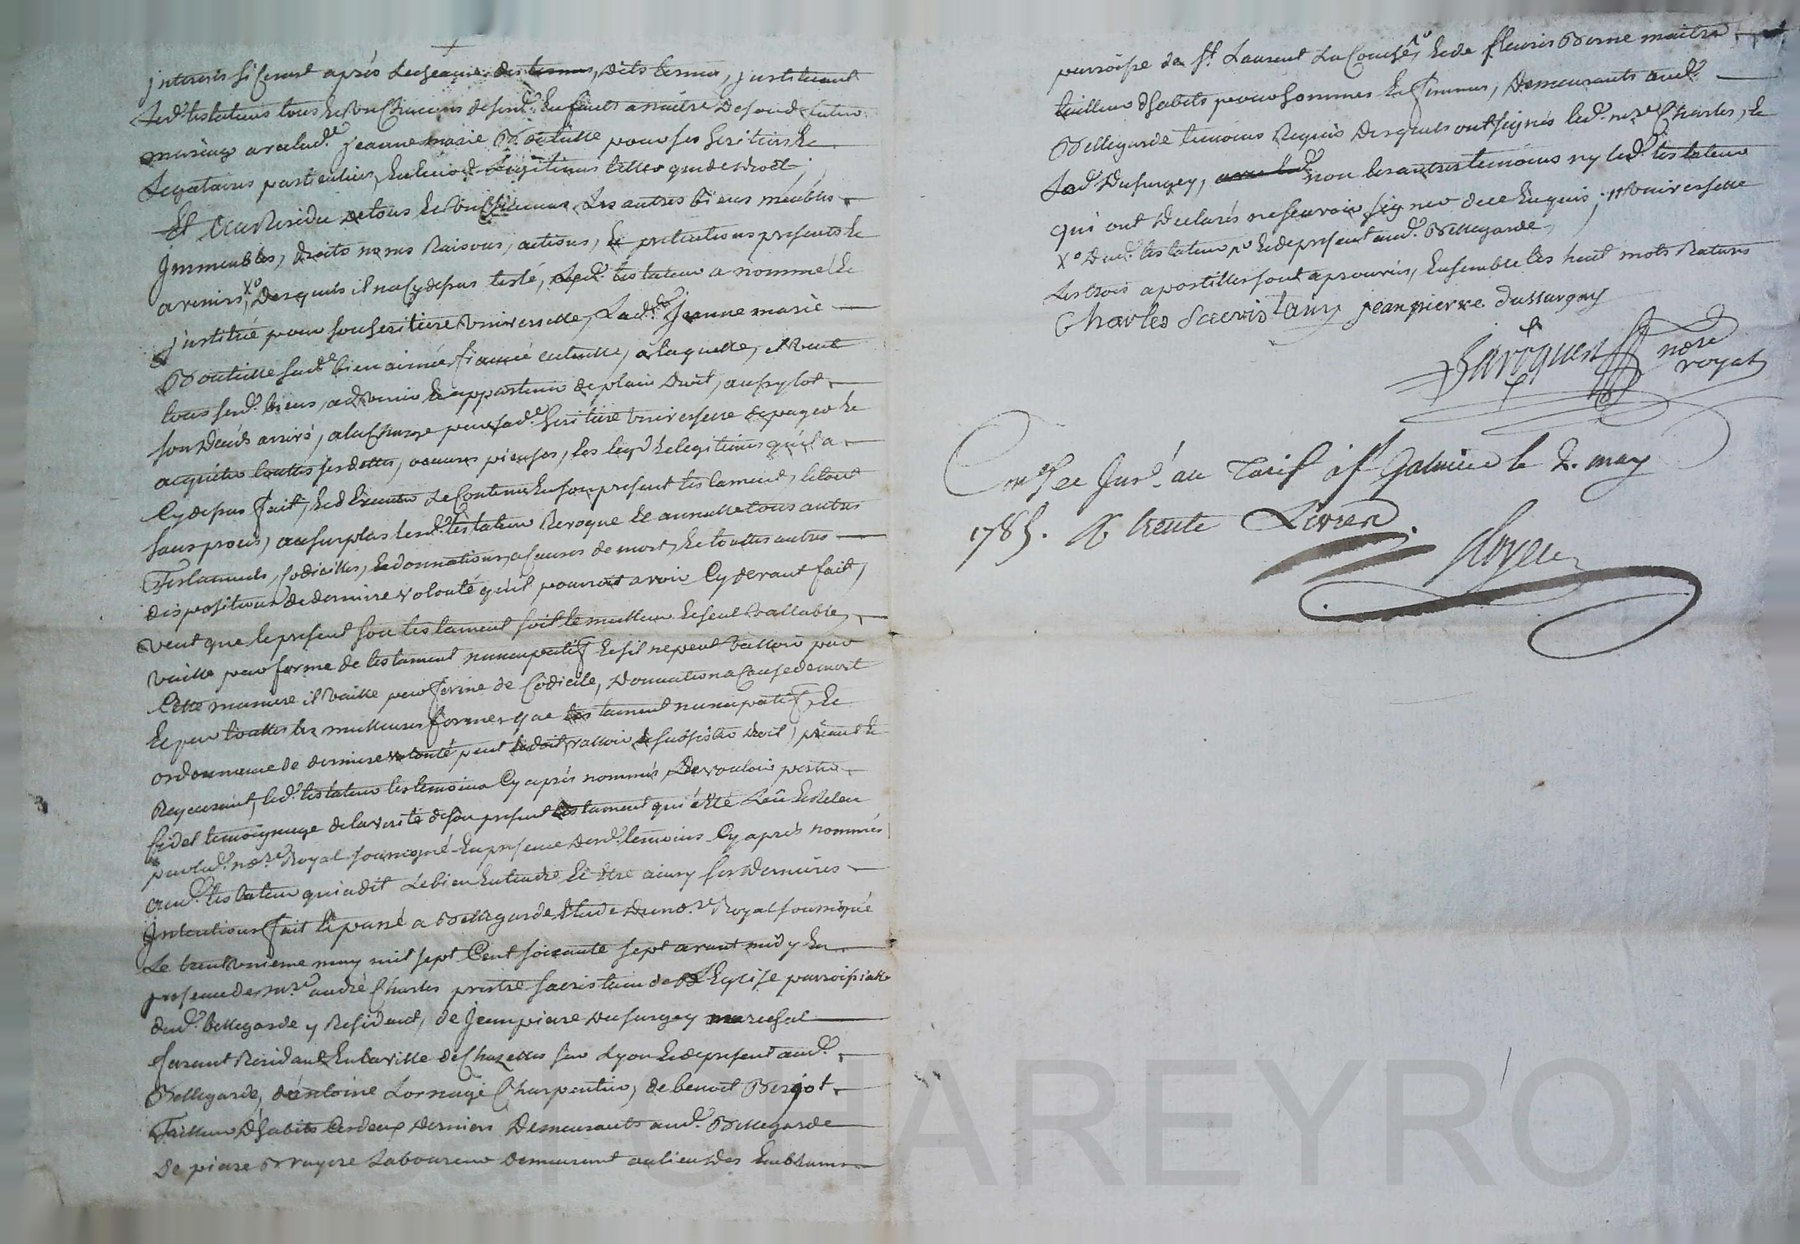 interests si feront après Lecheance des termes, dits termes, instituant
Led. testateur tous et uns chacuns desend. Enfants a naitre desond. futur
mariage avec lad. jeanne marie Bouteille pour ses heritiers et
Legataires particuliers, en leurs d. Legitimes telles que de droit,
Et au Residu de tous et uns chacuns Les autres biens meubles
Immeubles, droits noms Raisons, actions, et pretentions presents et
avenirs, x° Desquels il na cy depuis testé, Led. testateur a nommé et
institué pour son heritiere universelle, Lad. Jeanne marie
Bouteille sad. bien aimée fiancée future, a laquelle, il veut
tous sesd. biens, advenir et appartenir de plain droit, aussy tot
son Deceds arrivé, a la charge pour sad. heritiere universelle de payer et
acquitter touttes ses dettes, oeuvres pieuses, les legs et legitimes qu'il a
Cy depus fait, et d'Executer Le Contenu En son present testament, letout
sans procès, au surplus Led. testateur Revoque Et annulle tous autres
Testaments, Codicilles, et donnations a causes de mort, et touttes autres
dispositions de derniere volonté qu'il pourroit avoir Cy devant fait,
veut que le present son testament soit le meilleur et seul vallable,
vaille pour forme de testament nuncupatif Et sil ne peut valloir par
Cette maniere il vaille pour forme de Codicile, Donnation a Cause de mort
Et par touttes les meilleures formes que testament nuncupatif, Et
ordonnance de derniere volonté peut et doit valloir et subsister de droit, priant et
Requerant, led. testateur les temoins Cy après nommés, De vouloir porter
fidel temoignage de la verité de son present testament qui a été Lû et Relu
par led. no.re Royal soussigné En presence desd. temoins Cy après nommés
aud. testateur qui a dit Le bien Entendre Et etre ainsy ses Dernieres
Intentions fait Et passé a Bellegarde Etude dud. no.re Royal soussigné
Le trente unieme may mil sept Cent soixante sept avant midy En
presence de m.re andré Charles pretre sacristain de L'Eglise parroissialle
dud. bellegarde y Residant, de Jeanpierre Dusurgey marechal
ferant Residant En la ville de Chazelles sur Lyon et de present aud.
Bellegarde, d'antoine Lornage Charpentier, de benoit Berjot
Tailleur D'habits les deux Derniers Demeurants aud. Bellegarde
De pierre Bruyere Laboureur demeurant au lieu des
parroisse de St. Laurent La Conche, Et de fleuris Berne maitre
tailleur d'habits pour hommes Et femmes, Demeurants aud.
Bellegarde temoins Requis Desquels ont signés led. m.re Charles, Et
Led. Dusurgey, non les autres temoins ny led. testateur
qui ont Declarés ne scavoir signer de ce Enquis; universelle
x° Dud. testateur Et de present aud. Bellegarde,
Les trois apostilles sont aprouvés, Ensemble les huit mots Raturés
Charles Sacristain Jeanpierre dussurgey
no.re
royal
Con.lé et Jns.é au Tarif à St Galmier le 2. may
1785. R trente Livres.